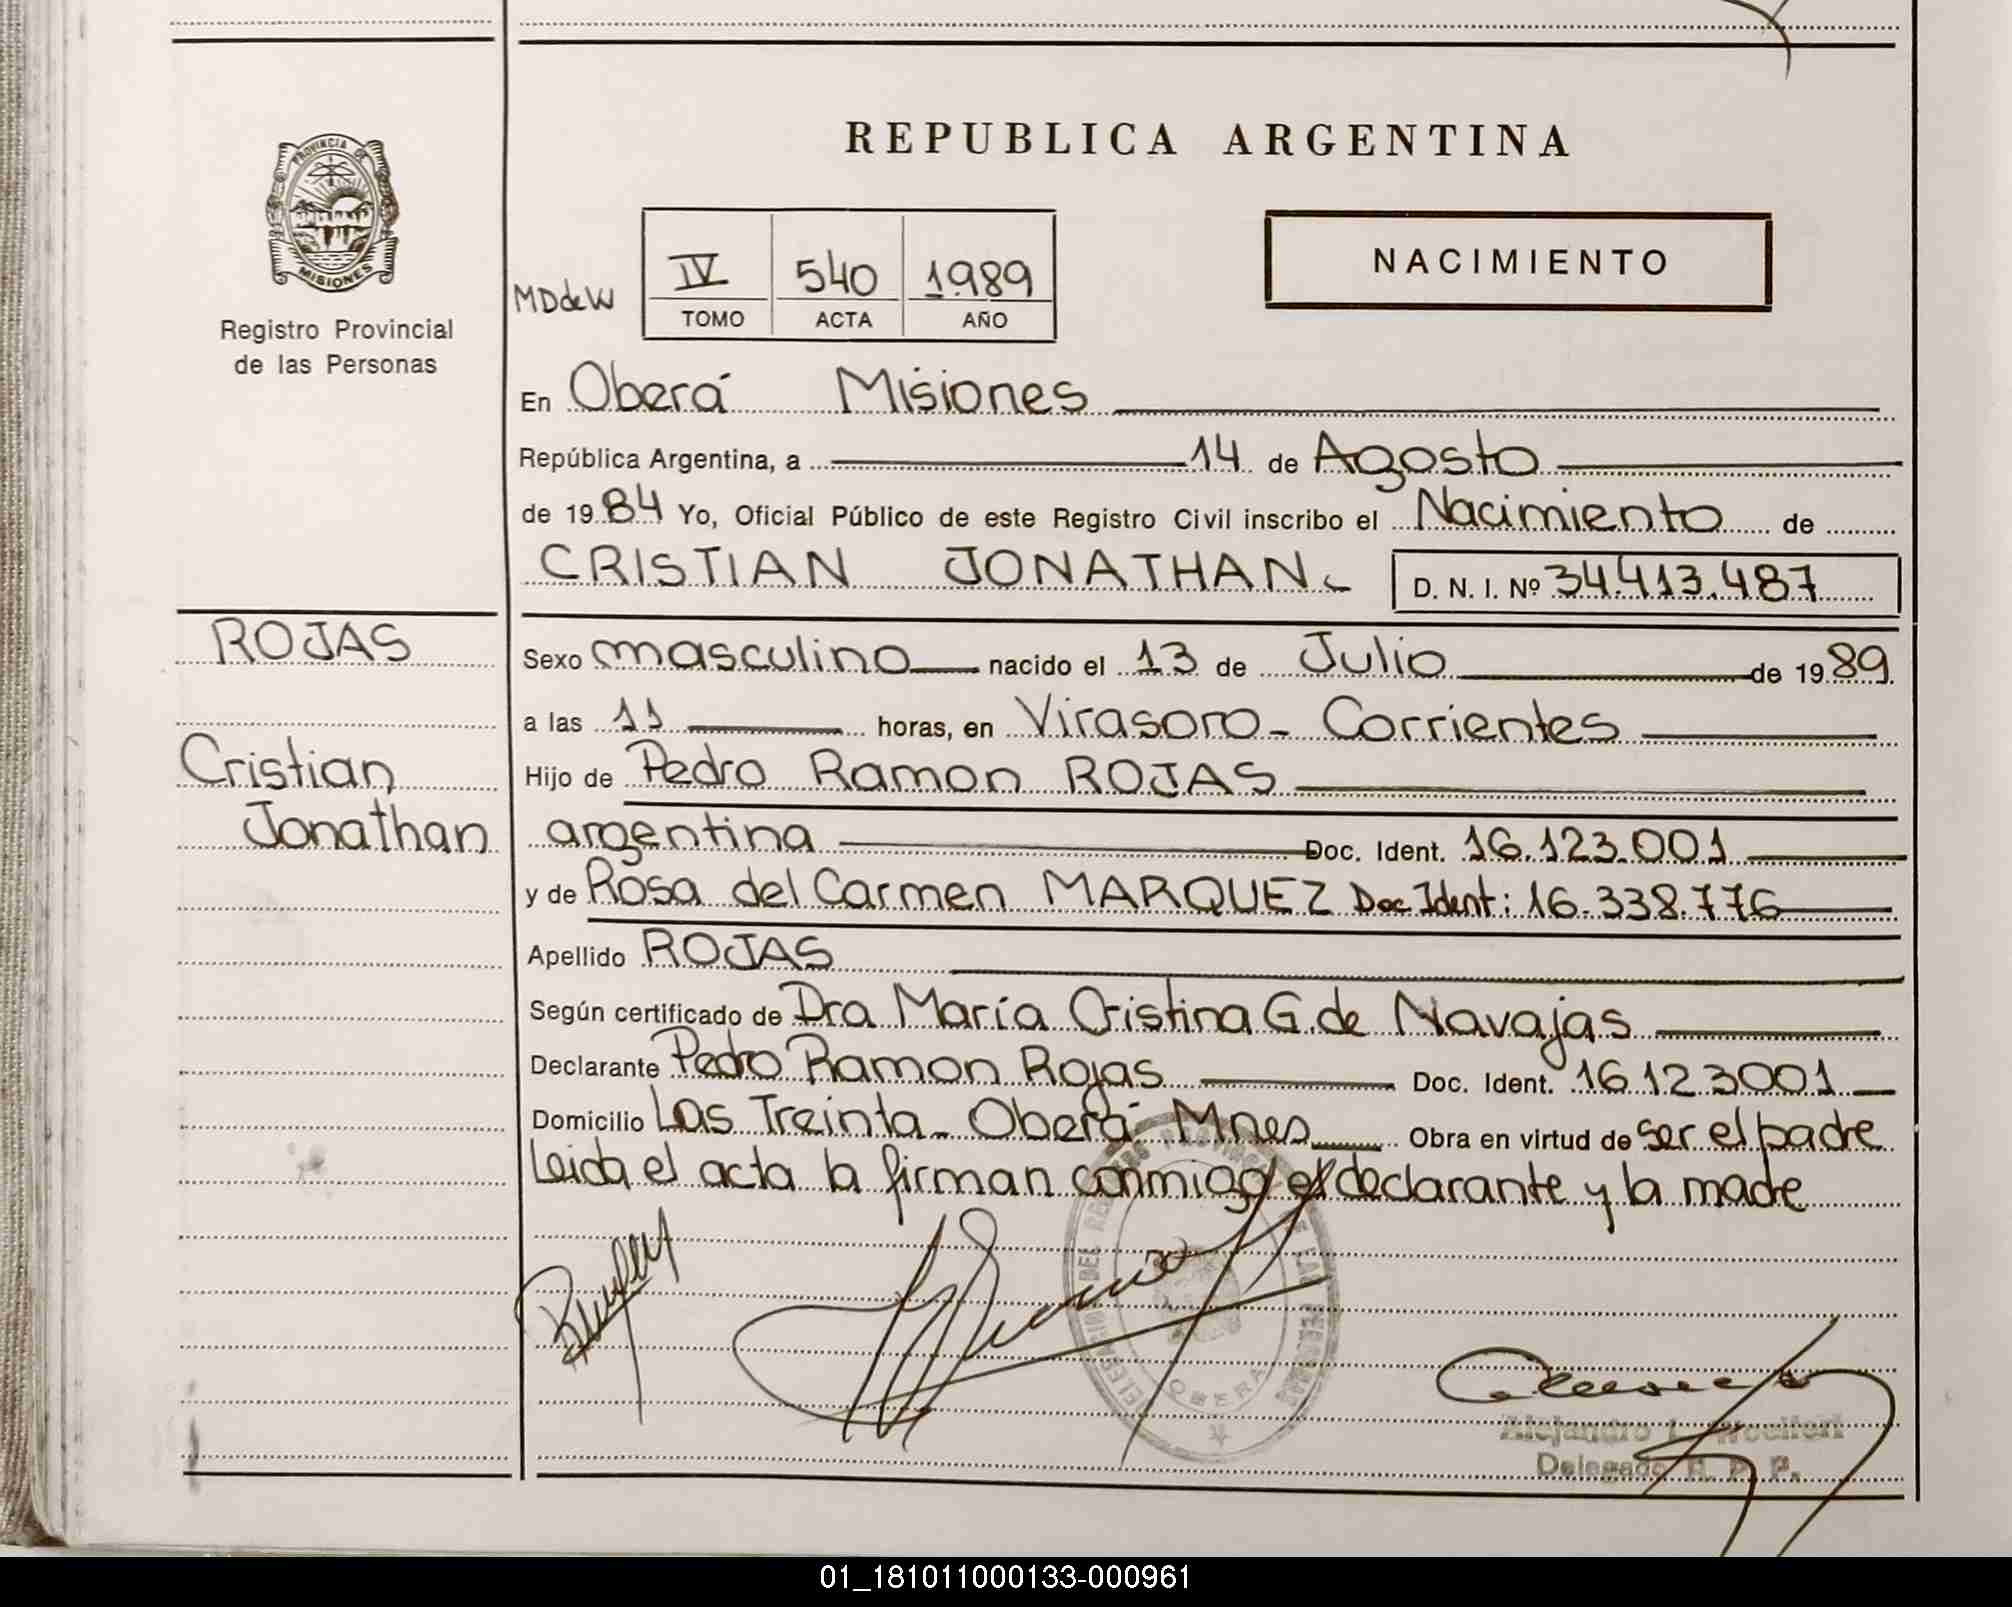 REPUBLICA ARGENTINA
PROVINCIA DE
MISIONES
Registro Provincial
de las Personas
NACIMIENTO
MDdeW
IV 540 1989
TOMO ACTA AÑO
En Oberá Misiones
República Argentina, a 14 de Agosto
de 1984 Yo, Oficial Público de este Registro Civil inscribo el Nacimiento de
CRISTIAN JONATHAN D. N. I. Nº 34.413.487
ROJAS
Cristian
Jonathan
Sexo masculino nacido el 13 de Julio de 1989
a las 11 horas, en Virasoro - Corrientes
Hijo de Pedro Ramon ROJAS
argentina Doc. Ident. 16.123.001
y de Rosa del Carmen MARQUEZ Doc Ident: 16.338.776
Apellido ROJAS
Según certificado de Dra María Cristina G. de Navajas
Declarante Pedro Ramon Rojas Doc. Ident. 16123001
Domicilio Las Treinta - Oberá Mnes Obra en virtud de ser el padre
Leida el acta la firman conmigo el declarante y la madre
OBERA
Delegado R. P. P.
01_181011000133-000961